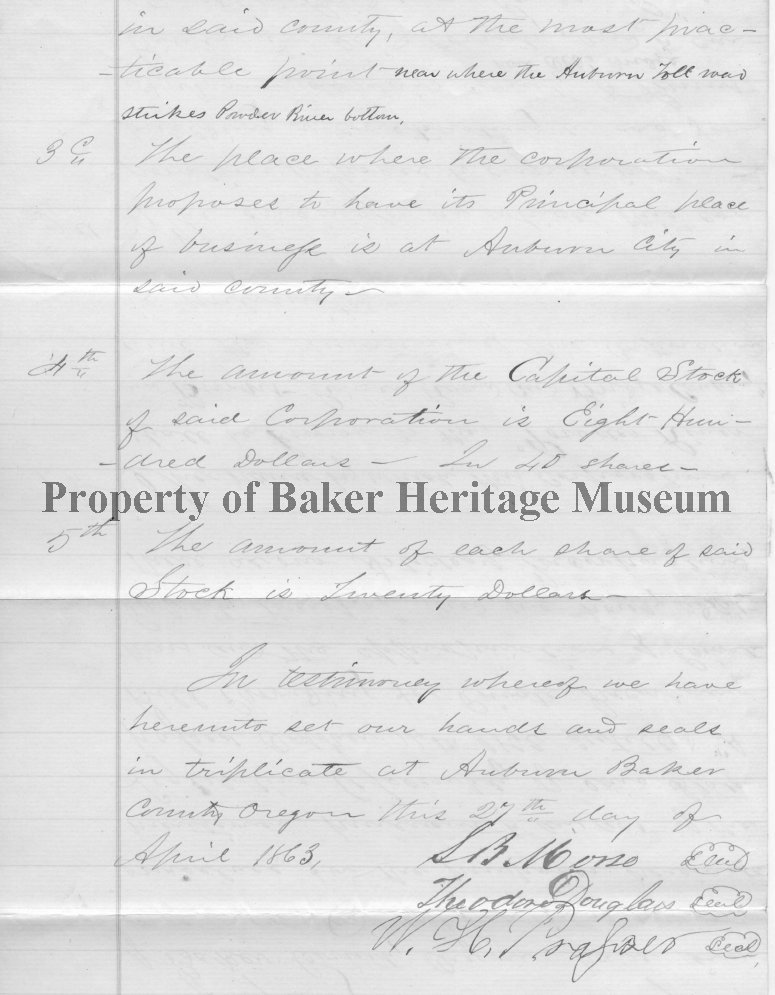 in said county, at the most prac-
-ticable point near where the Auburn Toll road
strikes Powder River bottom,
3d The place where the corporation
proposes to have its Principal place
of business is at Auburn City in
said county—
4th The amount of the Capital Stock
of said Corporation is Eight Hun-
-dred Dollars — In 40 shares—
Property of Baker Heritage Museum
5th The amount of each share of said
Stock is Twenty Dollars—
In testimoney whereof we have
hereunto set our hands and seals
in triplicate at Auburn Baker
County Oregon this 27th day of
April 1863, S B Morse Seal
Theodore Douglass Seal
W. H. Seal